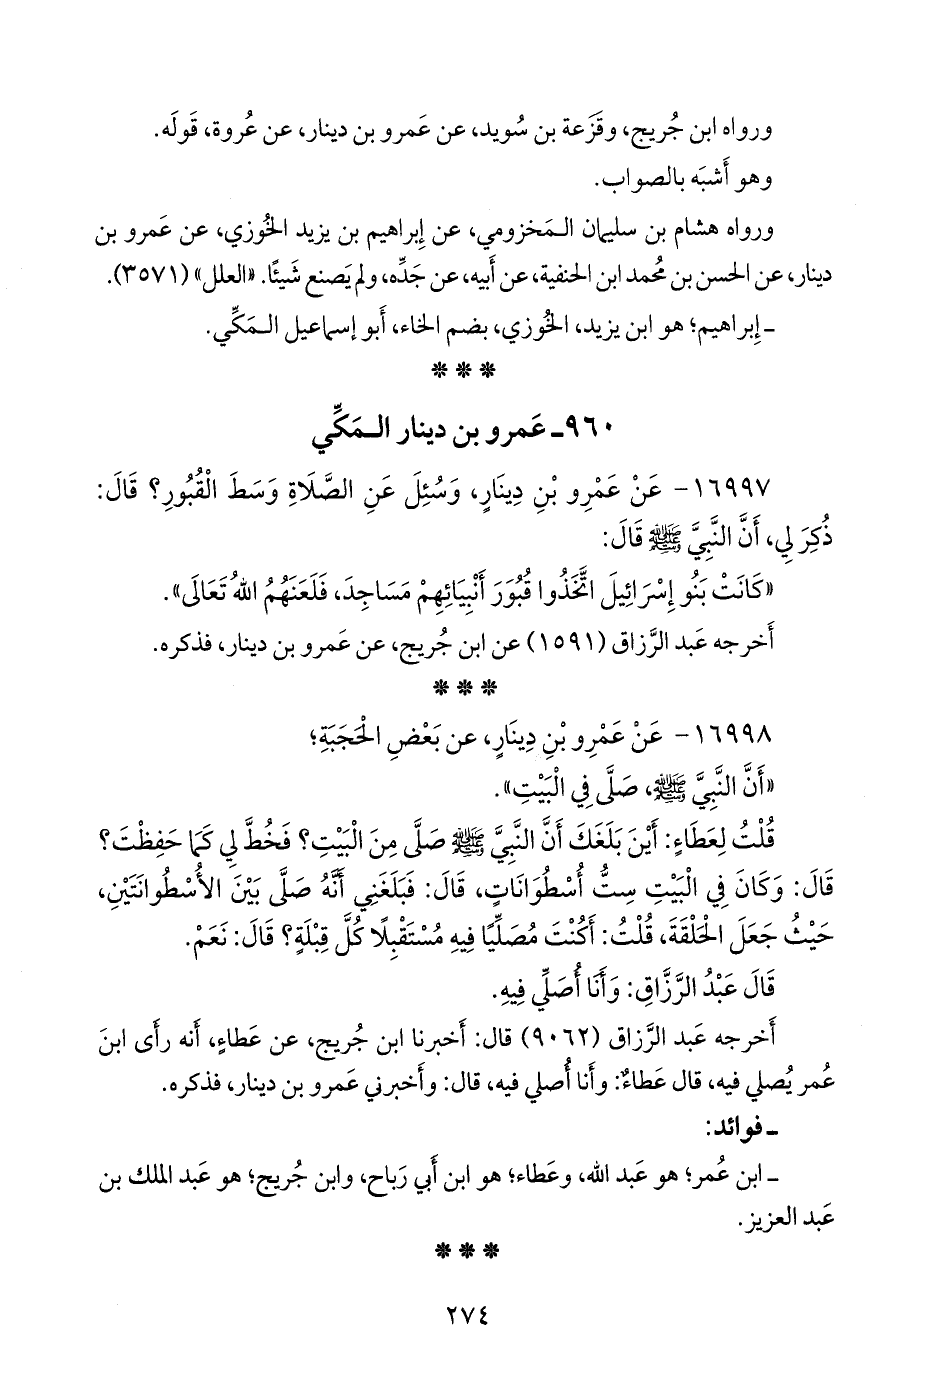 ورواه ابن جُريج، وقَزَعة بن سُويد، عن عَمرو بن دينار، عن عُروة، قَولَه.
وهو أَشبَه بالصواب.
ورواه هشام بن سليمان الـمَخزومي، عن إِبراهيم بن يزيد الخُوزي، عن عَمرو بن
دينار، عن الحسن بن مُحمد ابن الحنفية، عن أَبيه، عن جَدِّه، ولم يَصنع شَيئًا. «العلل» (٣٥٧١).
ـ إِبراهيم؛ هو ابن يزيد، الخُوزي، بضم الخاء، أَبو إسماعيل الـمَكِّي.
* * *
٩٦٠ـ عَمرو بن دينار الـمَكِّي
١٦٩٩٧- عَنْ عَمْرِو بْنِ دِينَارٍ، وَسُئِلَ عَنِ الصَّلَاةِ وَسَطَ الْقُبُورِ؟ قَالَ:
ذُكِرَ لِي، أَنَّ النَّبِيَّ ﷺ قَالَ:
«كَانَتْ بَنُو إِسْرَائِيلَ اتَّخَذُوا قُبُورَ أَنْبِيَائِهِمْ مَسَاجِدَ، فَلَعَنَهُمُ اللهُ تَعَالَى».
أَخرجه عَبد الرَّزاق (١٥٩١) عن ابن جُريج، عن عَمرو بن دينار، فذكره.
* * *
١٦٩٩٨- عَنْ عَمْرِو بْنِ دِينَارٍ، عن بَعْضِ الْحَجَبَةِ؛
«أَنَّ النَّبِيَّ ﷺ، صَلَّى فِي الْبَيْتِ».
قُلْتُ لِعَطَاءٍ: أَيْنَ بَلَغَكَ أَنَّ النَّبِيَّ ﷺ صَلَّى مِنَ الْبَيْتِ؟ فَخُطَّ لِي كَمَا حَفِظْتَ؟
قَالَ: وَكَانَ فِي الْبَيْتِ سِتُّ أُسْطُوَانَاتٍ، قَالَ: فَبَلَغَنِي أَنَّهُ صَلَّى بَيْنَ الأُسْطُوانَتَيْنِ،
حَيْثُ جَعَلَ الْحَلْقَةَ، قُلْتُ: أَكُنْتَ مُصَلِّيًا فِيهِ مُسْتَقْبِلًا كُلَّ قِبْلَةٍ؟ قَالَ: نَعَمْ.
قَالَ عَبْدُ الرَّزَّاقِ: وَأَنَا أُصَلِّي فِيهِ.
أَخرجه عَبد الرَّزاق (٩٠٦٢) قال: أَخبرنا ابن جُريج، عن عَطاءٍ، أَنه رأَى ابنَ
عُمر يُصلي فيه، قال عَطاءٌ: وأَنا أُصلي فيه، قال: وأَخبرني عَمرو بن دينار، فذكره.
ـ فوائد:
ـ ابن عُمر؛ هو عَبد الله، وعَطاء؛ هو ابن أَبي رَباح، وابن جُريج؛ هو عَبد الملك بن
عَبد العزيز.
* * *
٢٧٤